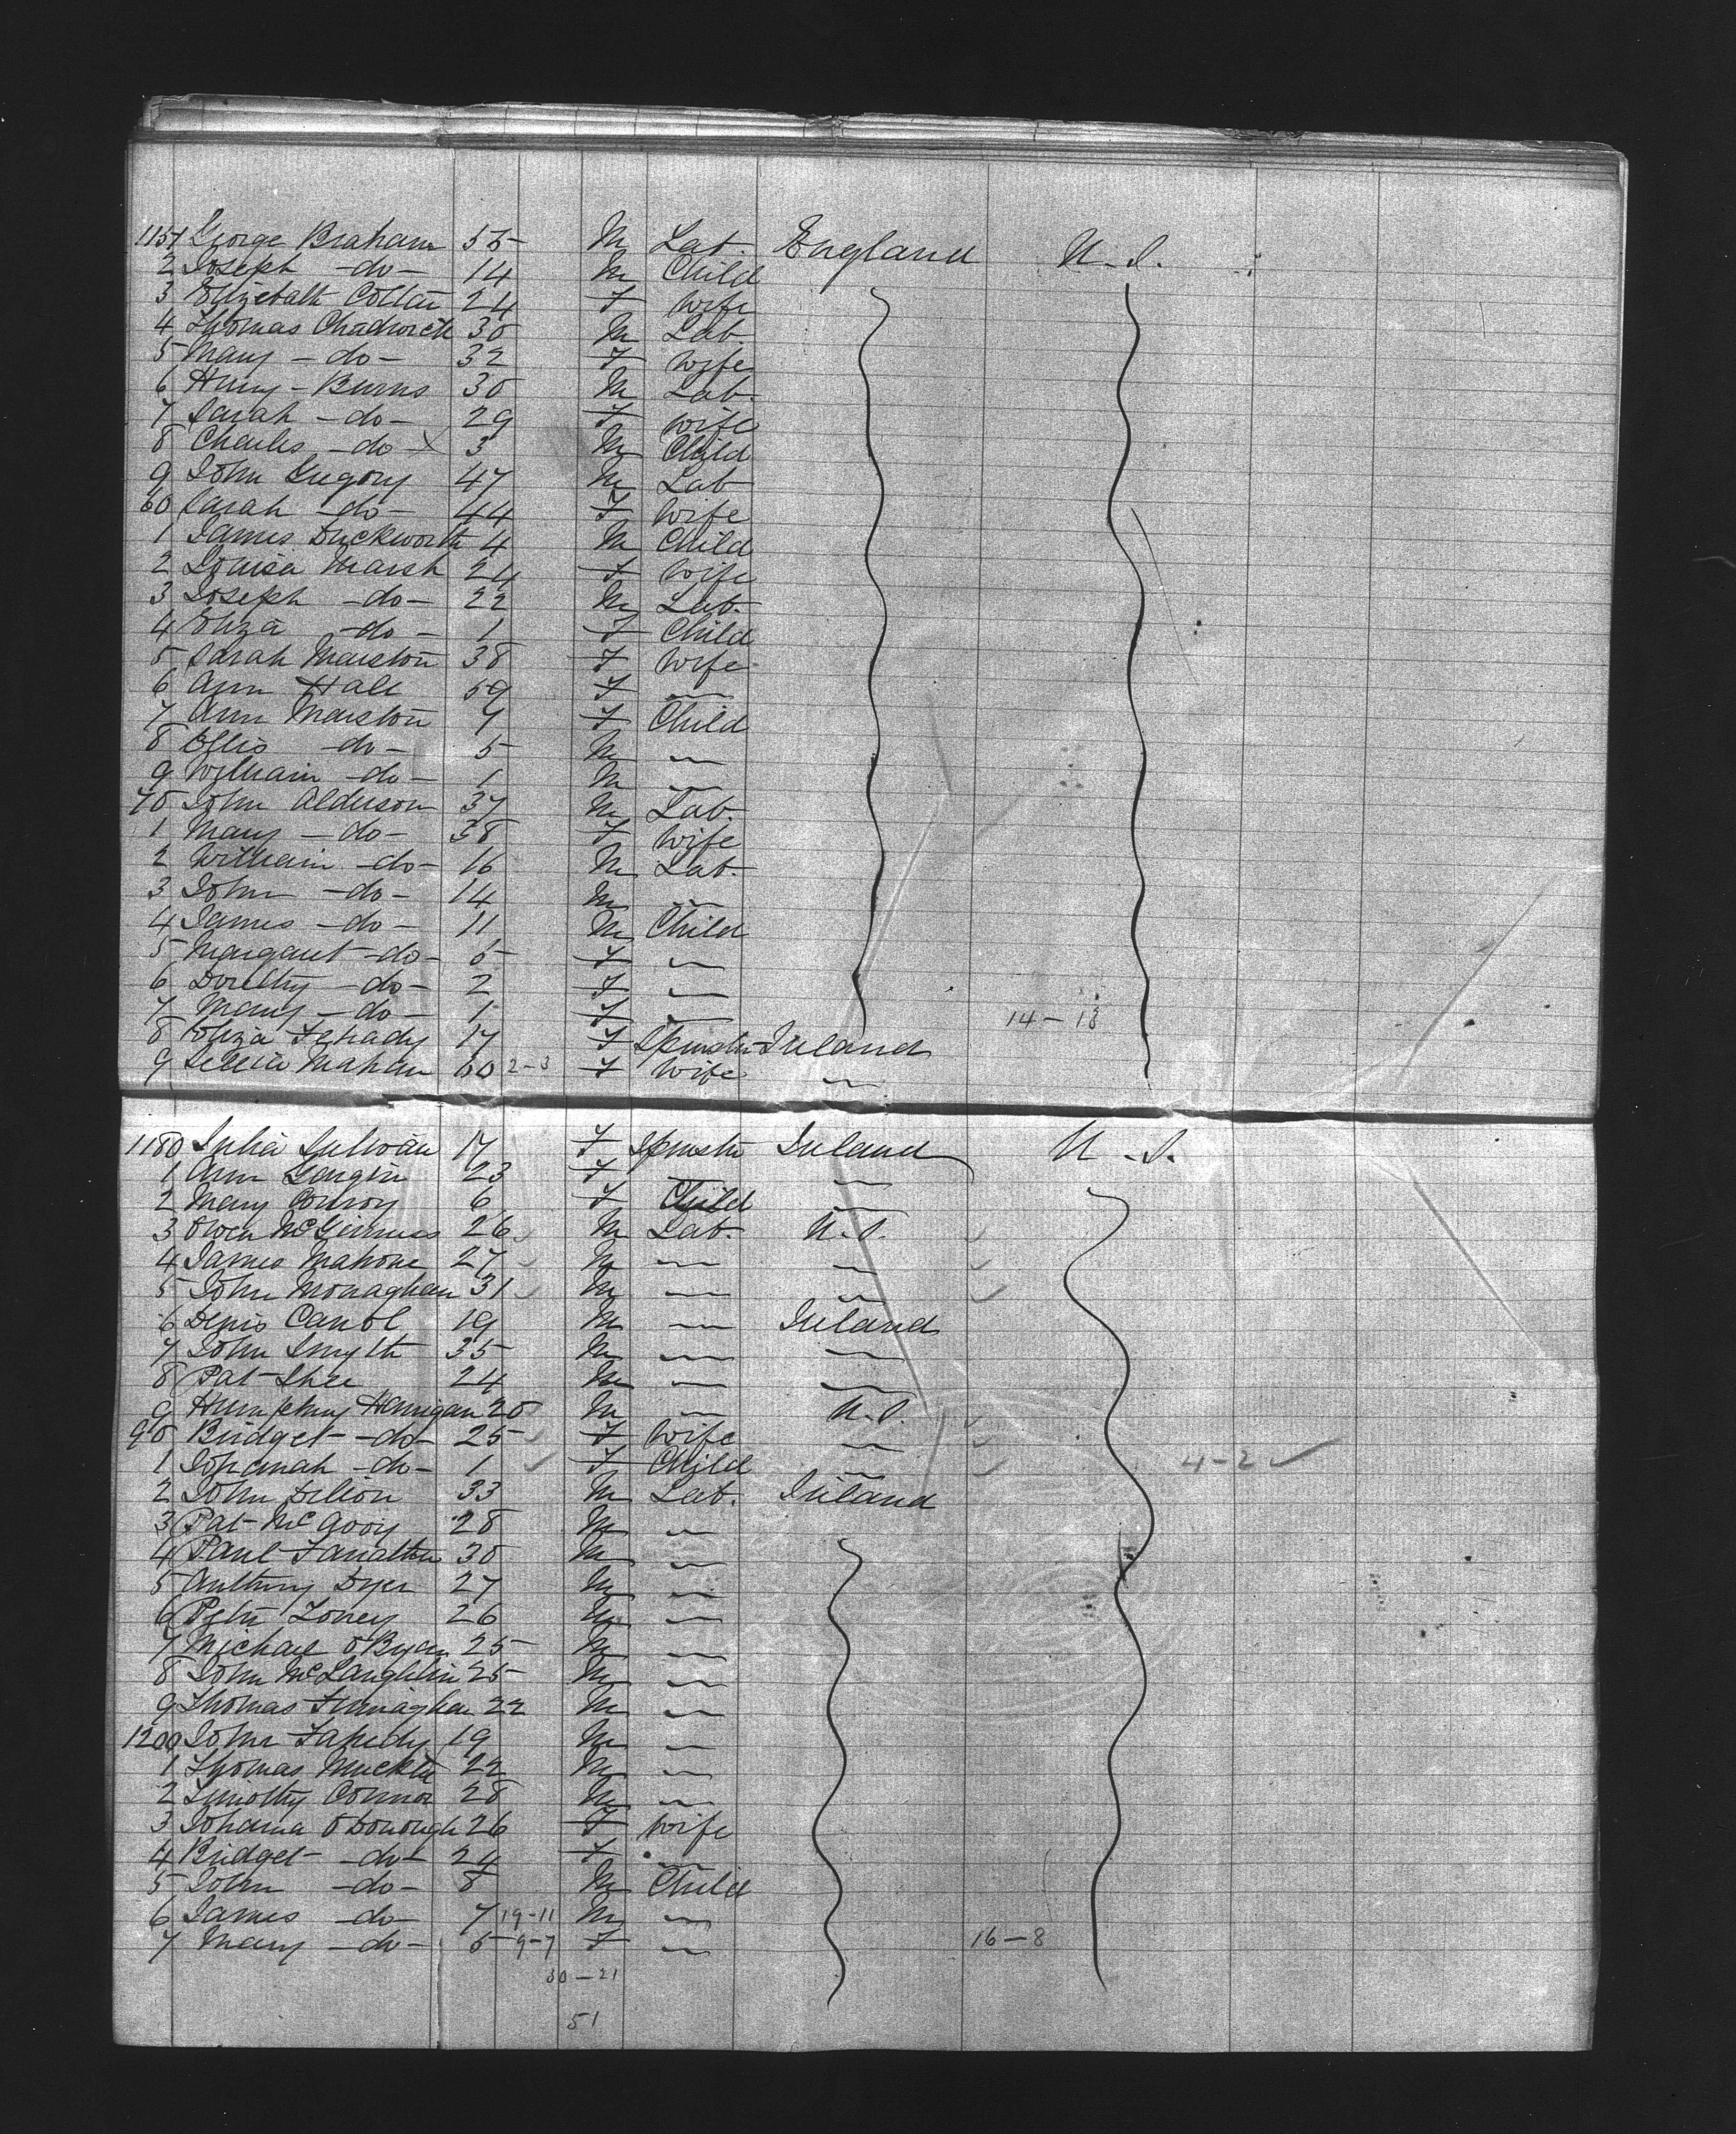 1151 George Braham 55 M Lab. England U.S.
2 Joseph -do- 14 M Child
3 Elizebath Cottan 24 F Wife
4 Thomas Chadwick 30 M Lab.
5 Mary -do- 32 F Wife
6 Henry Burns 30 M Lab.
7 Sarah -do- 29 F Wife
8 Charles -do- x 3 M Child
9 John Gregory 47 M Lab
60 Sarah -do- 44 F Wife
1 James Duckworth 4 M Child
2 Louisa Marsh 24 F Wife
3 Joseph -do- 22 M Lab.
4 Eliza -do- 1 F Child
5 Sarah Marston 38 F Wife
6 Ann Hall 59 F —
7 Ann Marston 7 F Child
8 Ollis -do- 5 M —
9 William -do- 1 M —
70 John Alderson 37 M Lab.
1 Mary -do- 38 F Wife
2 William -do- 16 M Lab.
3 John -do- 14 M —
4 James -do- 11 M Child
5 Margaret -do- 5 F —
6 Dorethy -do- 2 F —
7 Mary -do- 1 F — 14-13
8 Eliza 17 F Spinster Ireland
9 Mahan 60 2-3 F Wife —
1180 Julia Sulivan 17 F Spinster Ireland U.S.
1 Ann 23 F —
2 Mary Conroy 6 F Child —
3 Owen McGinness 26 M Lab. U.S.
4 James Mahone 27 M — —
5 John Monaghan 31 M — —
6 Denis Carrol 19 M — Ireland
7 John Smyth 35 M — —
8 Pat Shee 24 M — —
9 Humphrey Hannigan 20 M — U.S.
90 Bridget -do- 25 F Wife —
1 Johanah -do- 1 F Child — 4-2
2 John Dillon 33 M Lab. Ireland
3 Pat 28 M —
4 Paul 30 M —
5 Anthony Dyer 27 M —
6 Peter 26 M —
7 Michael O'Ryan 25 M —
8 John McLaughlin 25 M —
9 Thomas Finnaghan 22 M —
1200 John 19 M —
1 Thomas 22 M —
2 Timothy Connor 28 M —
3 Johanna O'Donough 26 F Wife
4 Bridget -do- 24 F —
5 John -do- 8 M Child
6 James -do- 7 19-11 M —
7 Mary -do- 5 9-7 F — 16-8
30-21
51